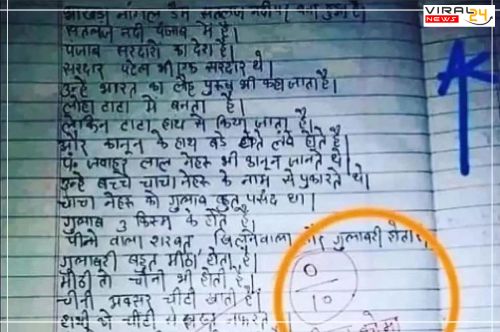 VIRAL 24
NEWS
भाखड़ा नांगल डैम सतलज नदी पर बना हुआ है।
सतलज नदी पंजाब में है।
पंजाब सरदारों का देश है।
सरदार पटेल भी एक सरदार थे।
उन्हें भारत का लौह पुरुष भी कहा जाता है।
लोहा टाटा में बनता है।
लेकिन टाटा हाथ से किया जाता है।
और कानून के हाथ बड़े होते लंबे होते हैं।
पं. जवाहर लाल नेहरू भी कानून जानते थे।
उन्हें बच्चे चाचा नेहरू के नाम से पुकारते थे।
चाचा नेहरू को गुलाब बहुत पसंद था।
गुलाब 3 किस्म के होते हैं।
पीने वाला शरबत गुलाबरी होता
गुलाबरी बहुत मीठा होता है।
मीठी तो चीनी भी होती है।
चीनी अक्सर चींटी खाती है।
हाथी को चींटी से नफरत
0
10